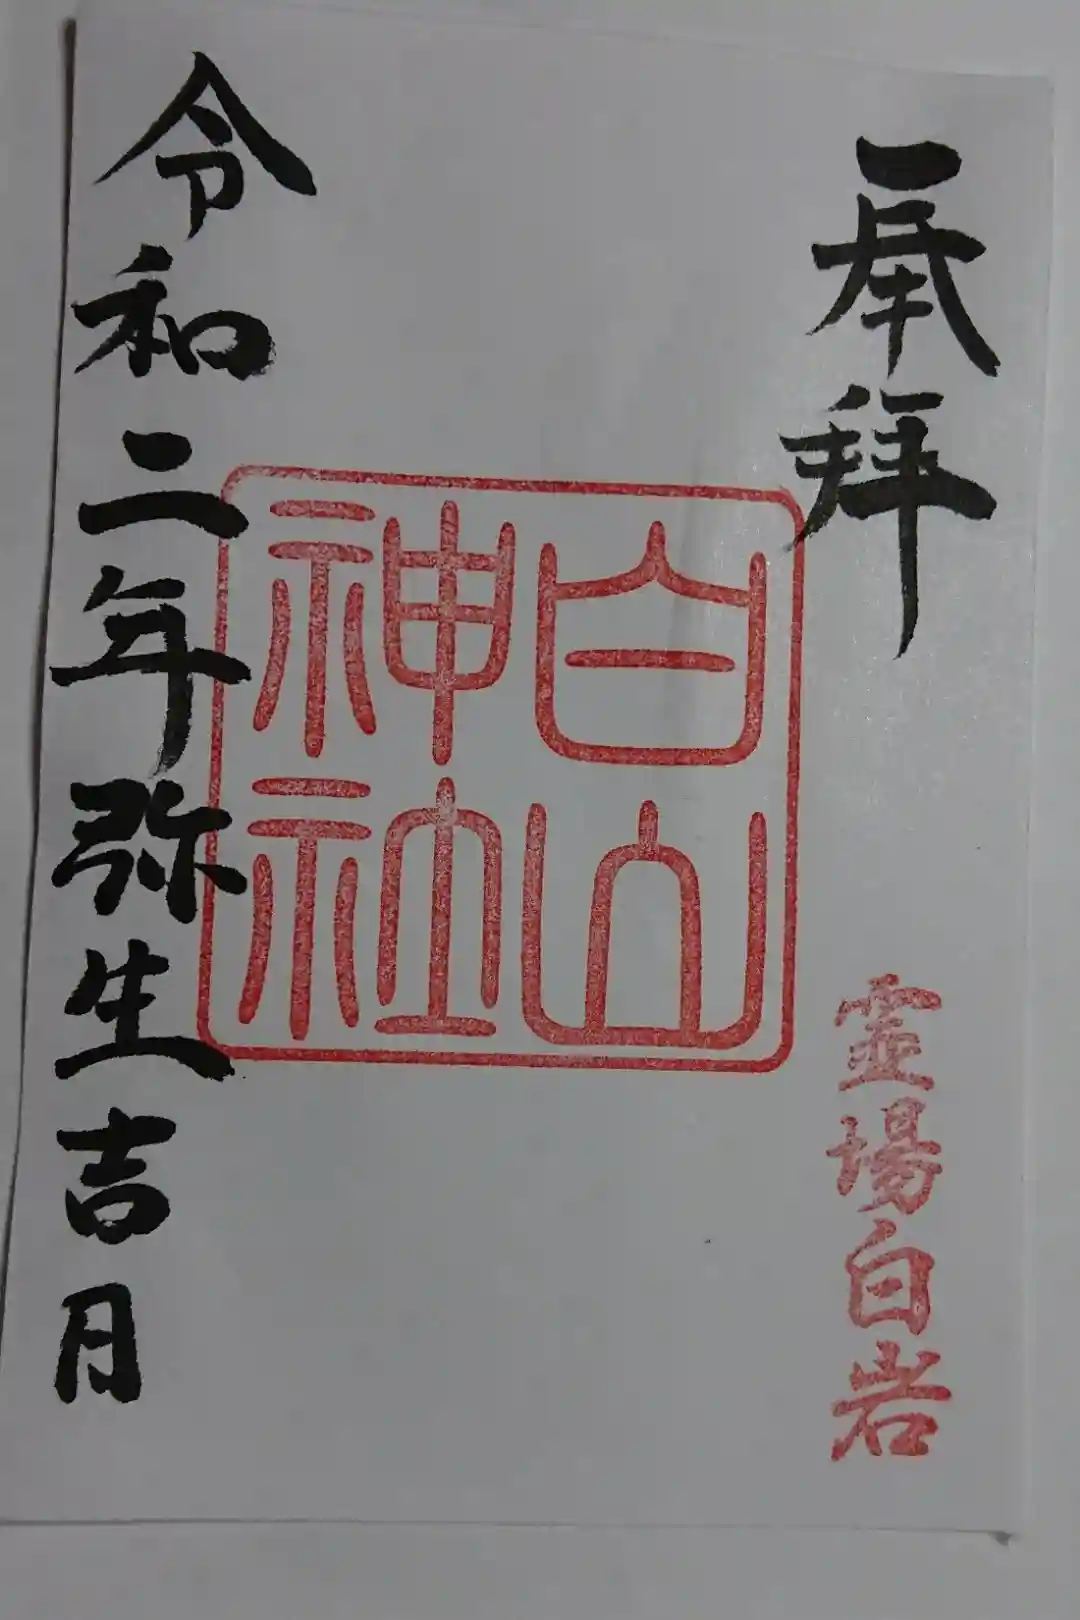 奉拝
霊場白岩
白山
神社
令和二年弥生吉月